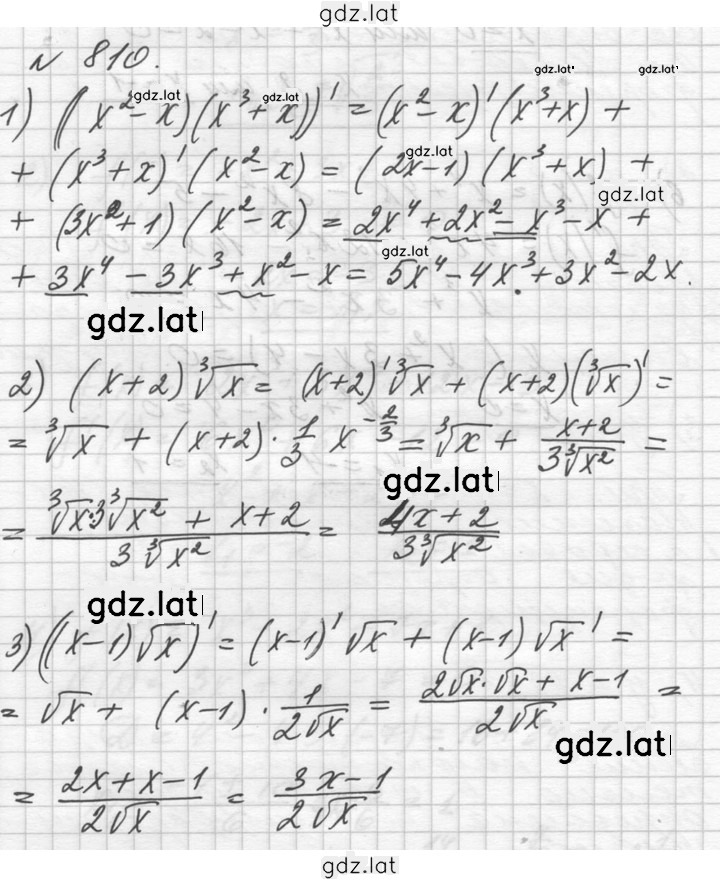 gdz.lat
№ 810.
gdz.lat' gdz.lat'
gdz.lat gdz.lat
1) ((x² - x)(x³ + x))' = (x² - x)'(x³ + x) +
gdz.lat
+ (x³ + x)'(x² - x) = (2x - 1)(x³ + x) +
gdz.lat
+ (3x² + 1)(x² - x) = 2x⁴ + 2x² - x³ - x +
gdz.lat
+ 3x⁴ - 3x³ + x² - x = 5x⁴ - 4x³ + 3x² - 2x.
gdz.lat
2) (x + 2)∛x = (x + 2)'∛x + (x + 2)(∛x)' =
= ∛x + (x + 2) · 1/3 x^(-2/3) = ∛x + (x + 2)/(3∛x²) =
gdz.lat
= (∛x · 3∛x² + x + 2)/(3∛x²) = (4x + 2)/(3∛x²)
gdz.lat
3) ((x - 1)√x)' = (x - 1)'√x + (x - 1)√x' =
= √x + (x - 1) · 1/(2√x) = (2√x · √x + x - 1)/(2√x) =
gdz.lat
= (2x + x - 1)/(2√x) = (3x - 1)/(2√x)
gdz.lat